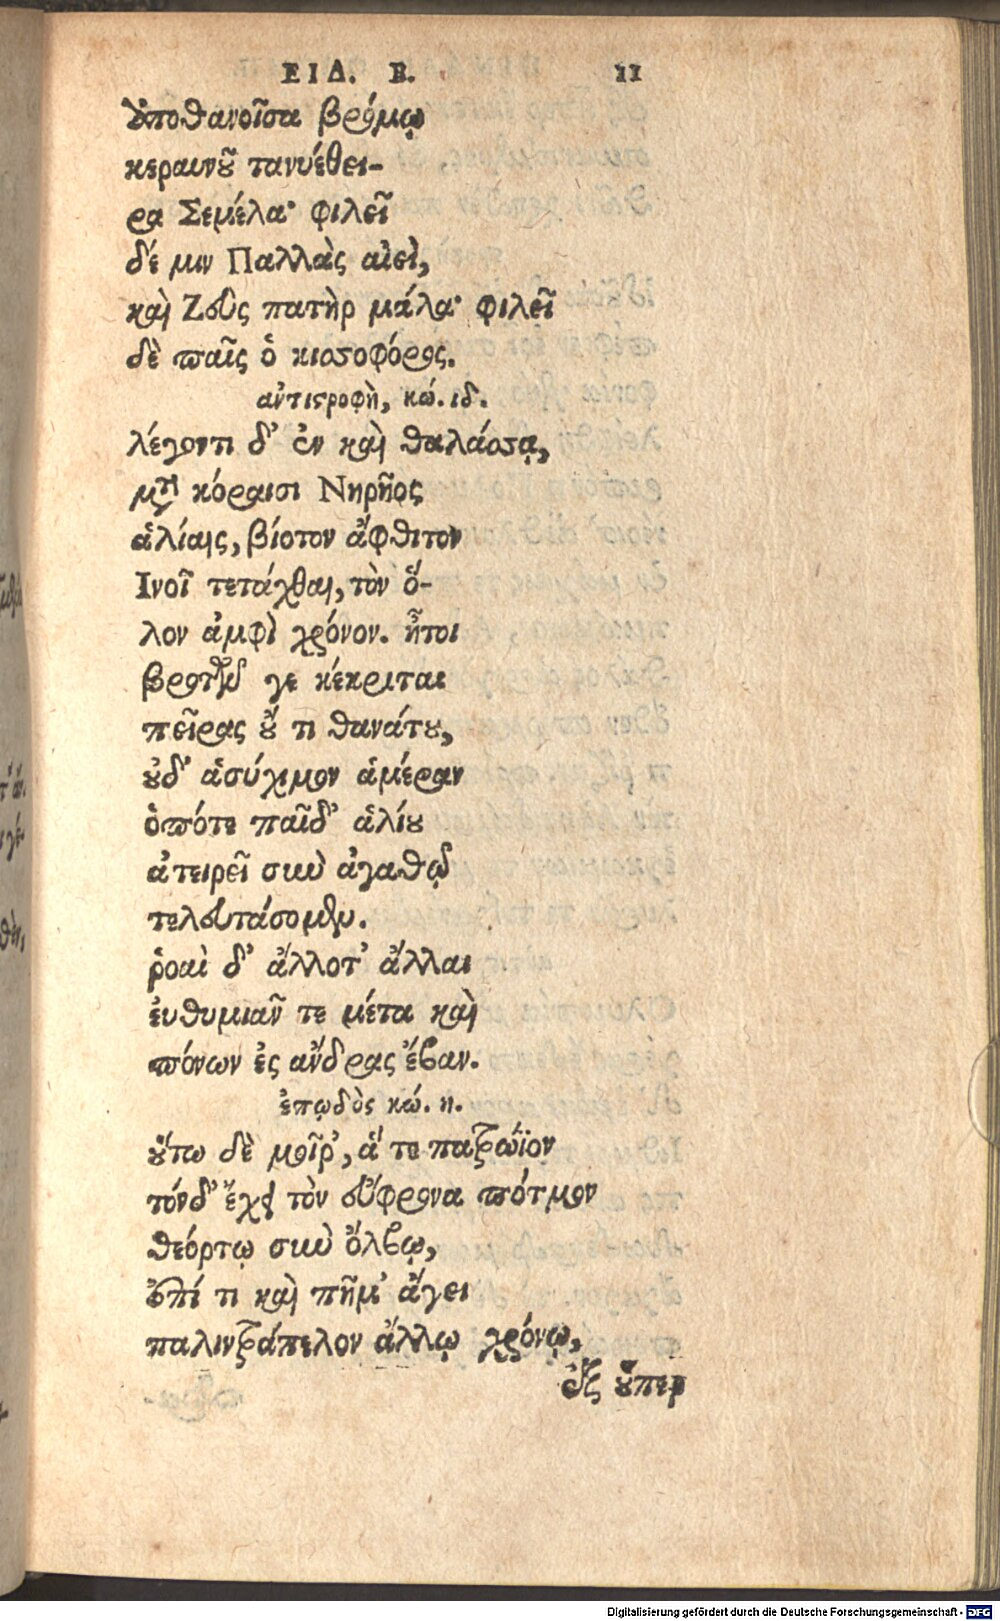 ΕΙΔ. Β. 11
ἀποθανοῖσα βρόμῳ
κεραυνοῦ τανυέθει-
ρα Σεμέλα· φιλεῖ
δέ μιν Παλλὰς αἰεὶ,
καὶ Ζεὺς πατὴρ μάλα· φιλεῖ
δὲ παῖς ὁ κισσοφόρος.
αντιστροφὴ, κώ. ιδ.
λέγοντι δ' ἐν καὶ θαλάσσᾳ,
μετὰ κόραισι Νηρῆος
ἁλίαις, βίοτον ἄφθιτον
Ινοῖ τετάχθαι, τὸν ὅ-
λον ἀμφὶ χρόνον. ἤτοι
βροτῶν γε κέκριται
πεῖρας οὔ τι θανάτου,
οὐδ' ἀσύχιμον ἁμέραν
ὁπότε παῖδ' ἁλίου
ἀτειρεῖ σὺν ἀγαθῷ
τελευτάσομεν.
ῥοαὶ δ' ἄλλοτ' ἄλλαι
ἐυθυμιᾶν τε μέτα καὶ
πόνων ἐς ἄνδρας ἔβαν.
ἐπῳδὸς κώ. η.
οὕτω δὲ μοῖρ', ἅ τε πατρώϊον
τόνδ' ἔχει τὸν εὔφρονα πότμον
θεόρτῳ σὺν ὄλβῳ,
ἐπί τι καὶ πῆμ' ἄγει
παλιντράπελον ἄλλῳ χρόνῳ,
ἐξ οὗπερ
Digitalisierung gefördert durch die Deutsche Forschungsgemeinschaft - DFG